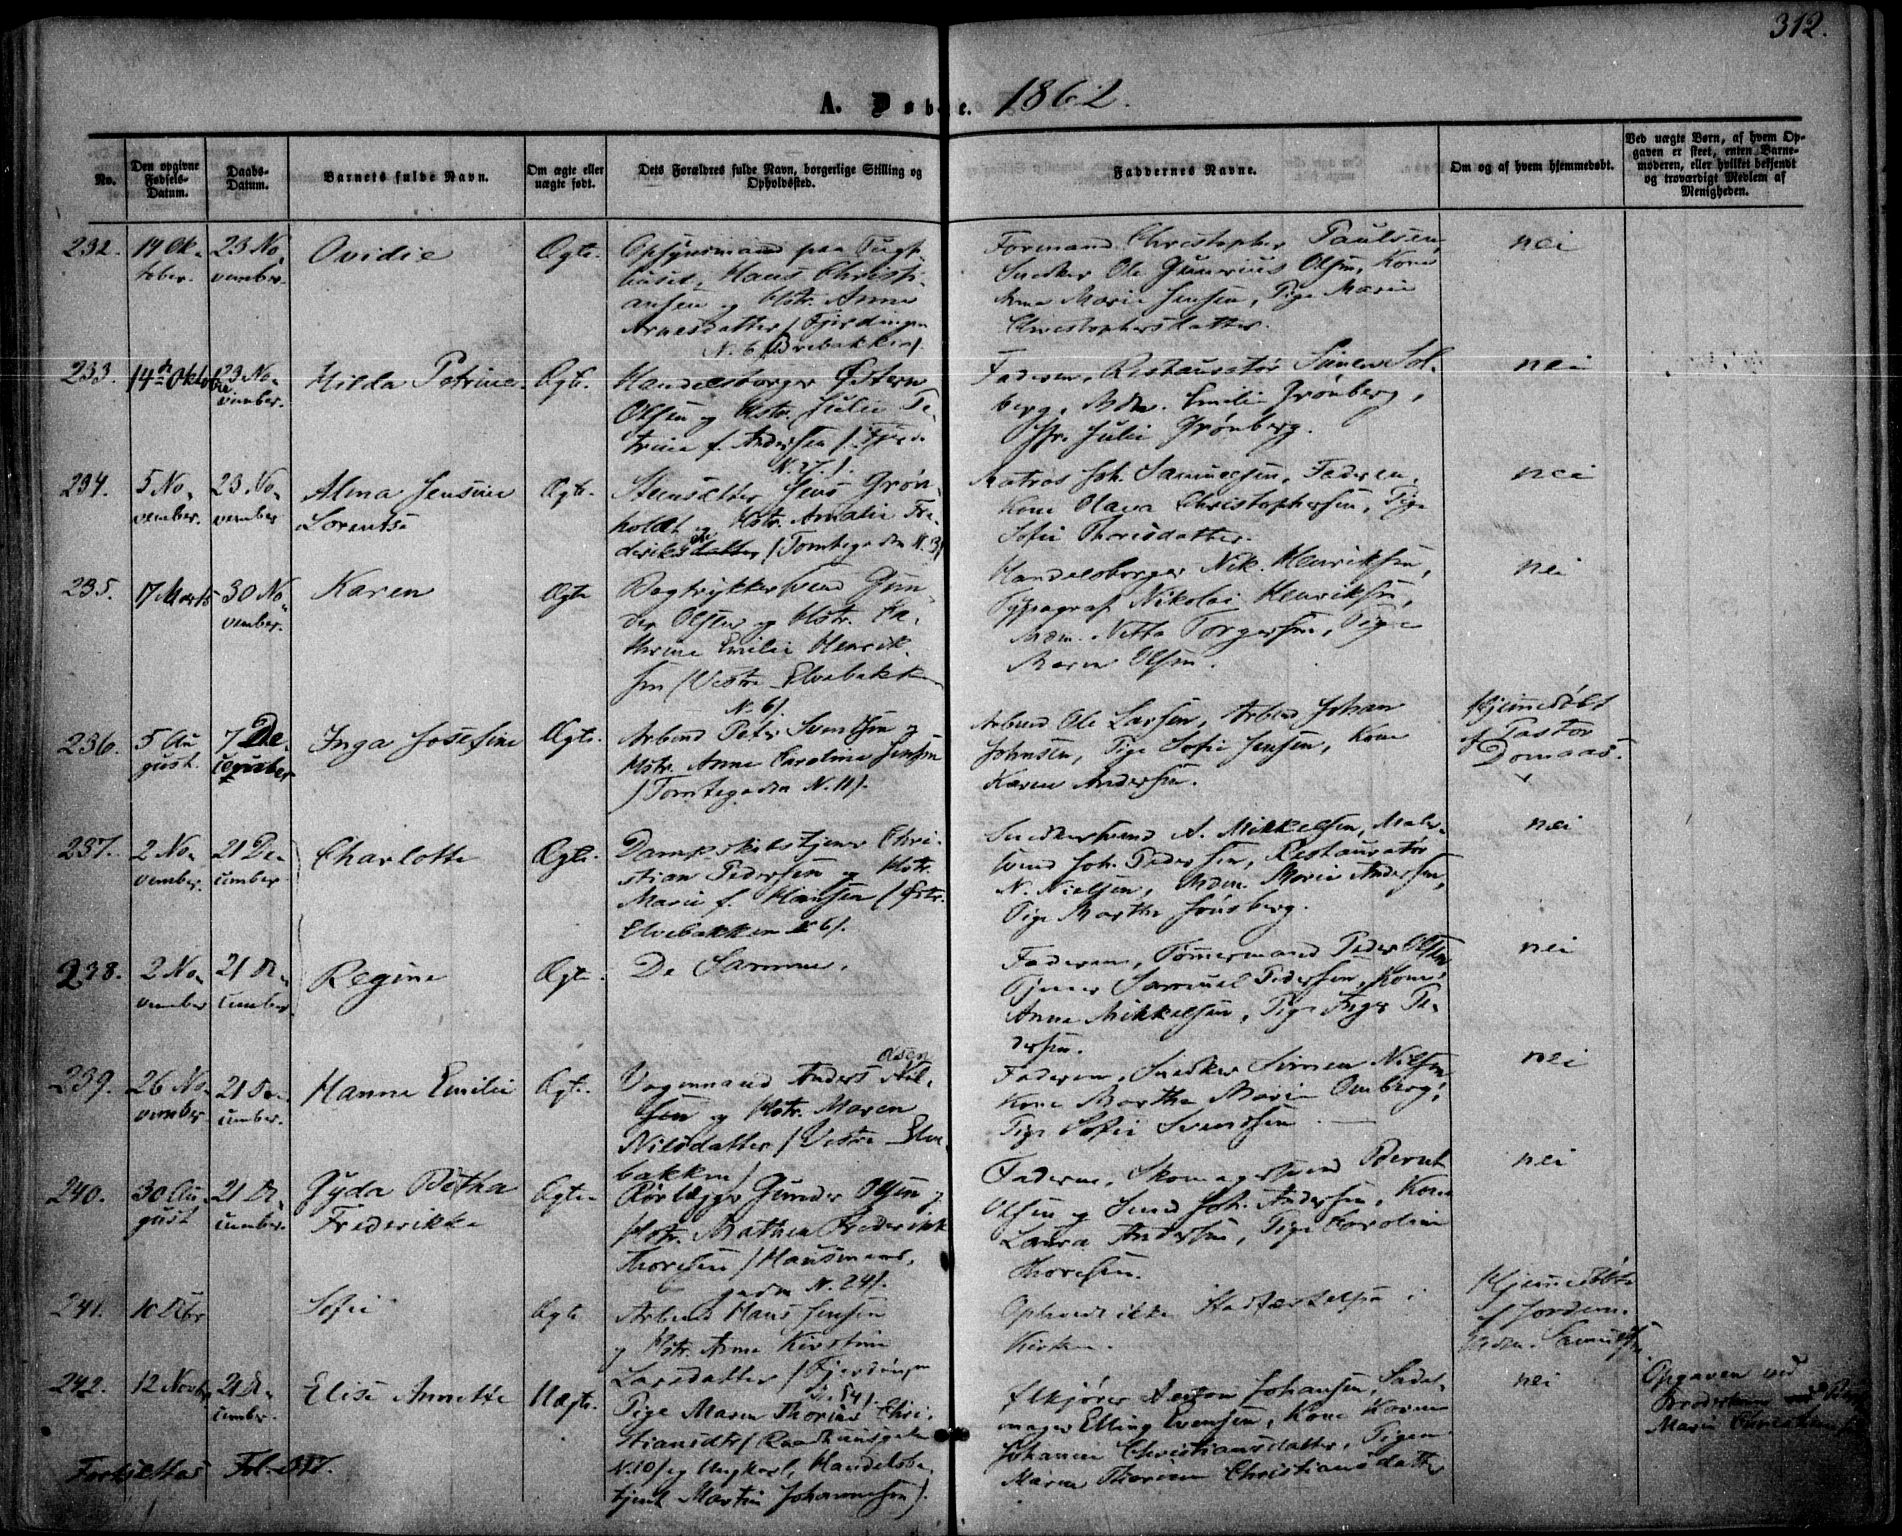 312.
A. Døbte. 1862.
No.
Den opgivne Fødsels-Datum.
Daabs-Datum.
Barnets fulde Navn.
Om ægte eller uægte født.
Dets Forældres fulde Navn, borgerlige Stilling og Opholdssted.
Faddernes Navne.
Om og af hvem hjemmedøbt.
Ved uægte Børn, af hvem Opgaven er skeet, enten Barnemoderen, eller hvilket bekjendt og troværdigt Medlem af Menigheden.
232.
19 Ok-
tober.
23 No-
vember.
Ovidie
Ægte.
Opsynsmand paa Tugt-
huset, Hans Christi-
ansen og Hstr. Anne
Arnesdatter / Fjerdingen
N. 6, Brebakken /.
Formand Christopher Paulsen,
Snedker Ole Gunerius Olsen, Kone
Anne Marie Jensen, Pige Marie
Christophersdatter.
nei
233.
14de Oktober
23 No-
vember.
Hilda Petrine.
Ægte.
Handelsborger Østern
Olsen og Hstr. Julie Pe-
trine f. Andersen / Fjerd.
N. 27. /.
Faderen, Restauratør Simen Sol-
berg, Mdm. Emilie Grønberg,
Jfr. Julie Grønberg.
nei
234.
5 No-
vember.
23 No-
vember
Alma Jensine
Lorentse
Ægte.
Steensætter Jens Grøn-
holdt og Hstr. Amalie Fre-
deriksdatter / Tomtegaden N. 3 /
Matros Joh. Samuelsen, Faderen,
Kone Olava Christophersen, Pige
Sofie Thorisdatter.
nei
235.
17 Marts
30 No-
vember.
Karen
Ægte
Bogtrykkersvend Gun-
der Olsen og Hstr. Ka-
thrine Emilie Henrik-
sen / Vestre Elvebakken
N. 6 /.
Handelsborger Nik. Henriksen,
Typograf Nikolai Henriksen,
Mdm. Netta Torgersen, Pige
Maren Olsen.
nei
236.
5 Au-
gust.
7 De-
cember
Inga Josefine
Ægte.
Arbmd Peter Svendsen og
Hstr. Anne Caroline Jensen
/ Tomtegaden N. 11 /.
Arbmd Ole Larsen, Arbmd Johan
Johnsen, Pige Sofie Jensen, Kone
Karen Andersen.
Hjemmedøbt
af Pastor
Domaas.
237.
2 No-
vember.
21 De-
cember
Charlotte
Ægte.
Dampskibstjener Chri-
stian Pedersen og Hstr.
Marie f. Hansen / Østr.
Elvebakken N 6 /.
Snedkersvend A. Mikkelsen, Maler-
svend Joh. Pedersen, Restauratør
N. Nielsen, Mdm. Marie Andersen,
Pige Marthe Jonsberg.
nei
238.
2 No-
vember
21 De-
cember.
Regine
Ægte.
De Samme.
Faderen, Tømmermand Peder Olsen
Tjener Samuel Pedersen, Kone
Anne Mikkelsen, Pige Inger Pe-
dersen.
nei
239.
26 No-
vember
21 De-
cember.
Hanna Emilie
Ægte.
Vognmand Anders Niel-
Olsen
sen og Hstr. Maren
Nilsdatter / Vestre Elve-
bakken /
Faderen, Snedker Simen Nilsen
Kone Marthe Marie Omberg,
Pige Sofie Svendsen
nei
240.
30 Au-
gust
21 De-
cember.
Gyda Betha
Frederikke
Ægte
Rørlægger Gunder Olsen og
Hstr. Mathea Frederikke
Thoresen / Hausmans-
gaden N. 24 /.
Faderen, Skomagersvend Bernt
Olsen og Smed Joh. Andersen, Kone
Laura Andersen, Pige Caroline
Thoresen.
nei
241.
10 Dcbr
Sofie
Ægte
Arbmd Hans Jensen
og Hstr. Anne Kirstine
Larsdatter / Fjerdingen
N. 54 /.
Oplevede ikke Stadfæstelsen i
Kirken.
Hjemmedøbt
af Jordem.
Mdm. Samuelsen
242.
12 Novbr
21 De-
cember.
Elise Annette
Uægte.
Pige Maren Thorine Chri-
stiansdtr / Raadhusgaden
N. 10 / og Ungkarl, Handelsbe-
tjent Martin Johannesen /.
Flkjører Anton Johansen, Sadel-
mager Elling Evensen, Kone Karen
Johanne Christiansdatter, Pigen
Maren Thorine Christiansdatter
nei
Opgaven ved
Marie Christiansen
Fortsættes Fol. 317.